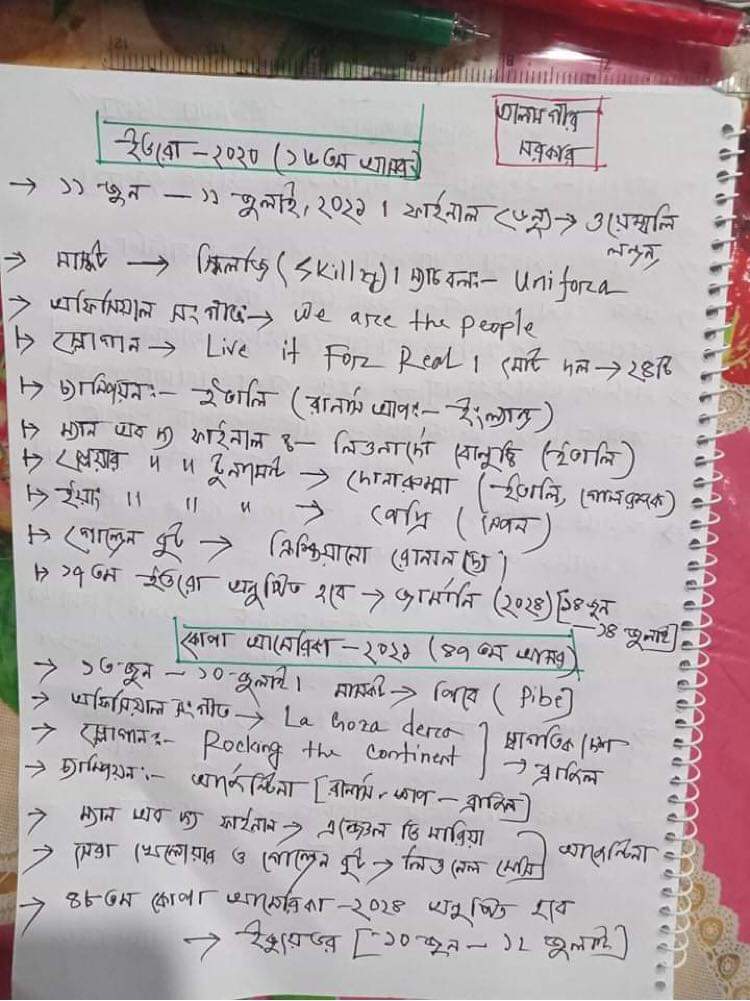 আলমগীর
সরকার
ইউরো - ২০২০ (১৬ তম আসর)
→ ১১ জুন - ১১ জুলাই, ২০২১। ফাইনাল (ভেন্যু) → ওয়েম্বলি
লন্ডন
→ মাস্কট → স্কিলজি (Skillzy)। ম্যাচবলঃ- Uniforia
→ অফিসিয়াল সংগীতঃ → We are the people
→ স্লোগান → Live it For Real। মোট দল → ২৪টি
→ চ্যাম্পিয়নঃ- ইতালি (রানার্স আপঃ- ইংল্যান্ড)
→ ম্যান অব দ্য ফাইনাল ঃ- লিওনার্দো বোনুচ্চি (ইতালি)
→ প্লেয়ার " " টুর্নামেন্ট → দোনারুম্মা (ইতালি, গোলরক্ষক)
→ ইয়াং " " " → পেদ্রি (স্পেন)
→ গোল্ডেন বুট → ক্রিশ্চিয়ানো রোনালদো।
→ ১৭ তম ইউরো অনুষ্ঠিত হবে → জার্মানি (২০২৪) [১৪ জুন
- ১৪ জুলাই]
কোপা আমেরিকা - ২০২১ (৪৭ তম আসর)
→ ১৩ জুন - ১০ জুলাই। মাসকট → পিবে (Pibe)
→ অফিসিয়াল সংগীত → La Goza dera
→ স্লোগানঃ- Rocking the continent স্বাগতিক দেশ → ব্রাজিল
→ চ্যাম্পিয়নঃ- আর্জেন্টিনা [রানার্স-আপ - ব্রাজিল]
→ ম্যান অব দ্য ফাইনাল → এঞ্জেল ডি মারিয়া
→ সেরা খেলোয়ার ও গোল্ডেন বুট → লিওনেল মেসি আর্জেন্টিনা
→ ৪৮ তম কোপা আমেরিকা - ২০২৪ অনুষ্ঠিত হবে
→ ইকুয়েডর [১০ জুন - ১২ জুলাই]